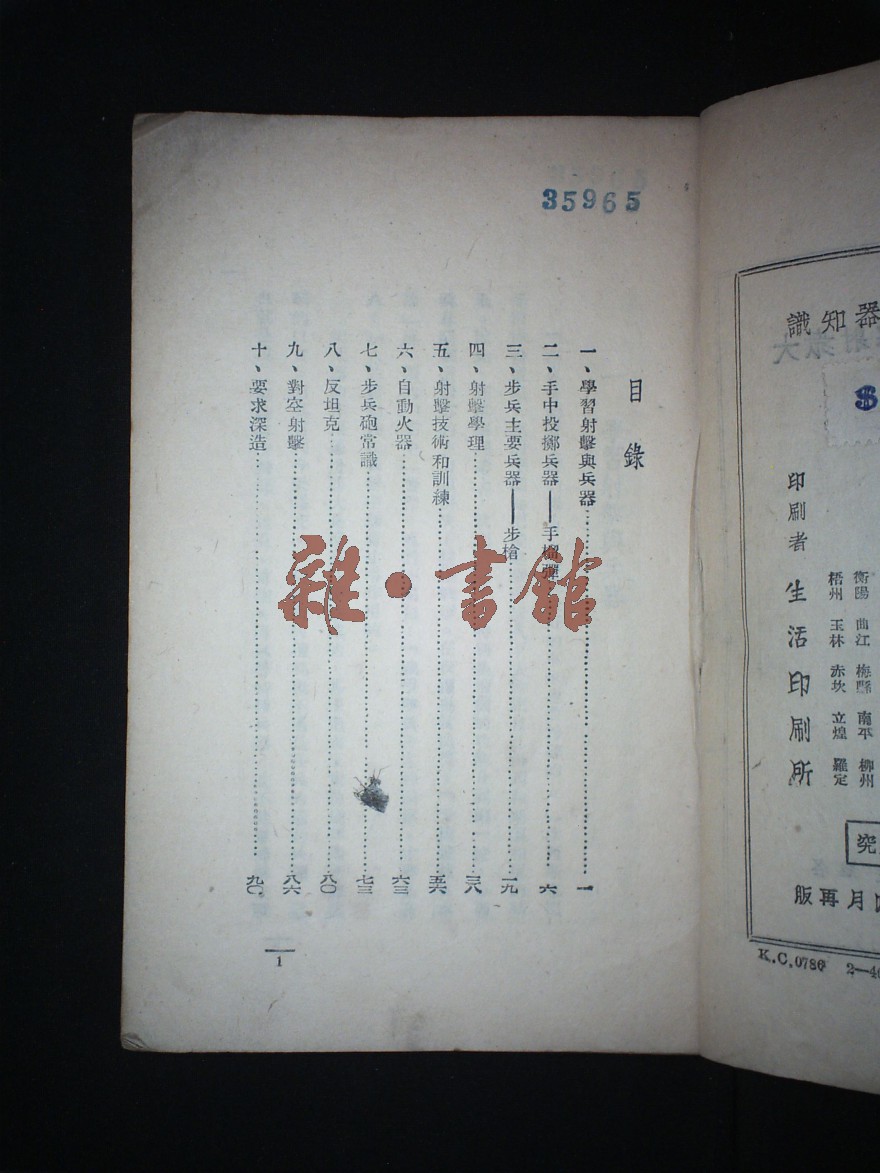 35965
目錄
一、學習射擊與兵器……一
二、手中投擲兵器——手榴彈……六
三、步兵主要兵器——步槍……一九
四、射擊學理……三八
五、射擊技術和訓練……五六
六、自動火器……六三
七、步兵砲常識……七三
八、反坦克……八〇
九、對空射擊……八六
十、要求深造……九〇
1
雜·書館
器知識
印刷者 生活印刷所
衡陽 曲江 梅縣 南平 柳州
梧州 玉林 赤坎 立煌 羅定
究
月再版
K.C.0786 2—40